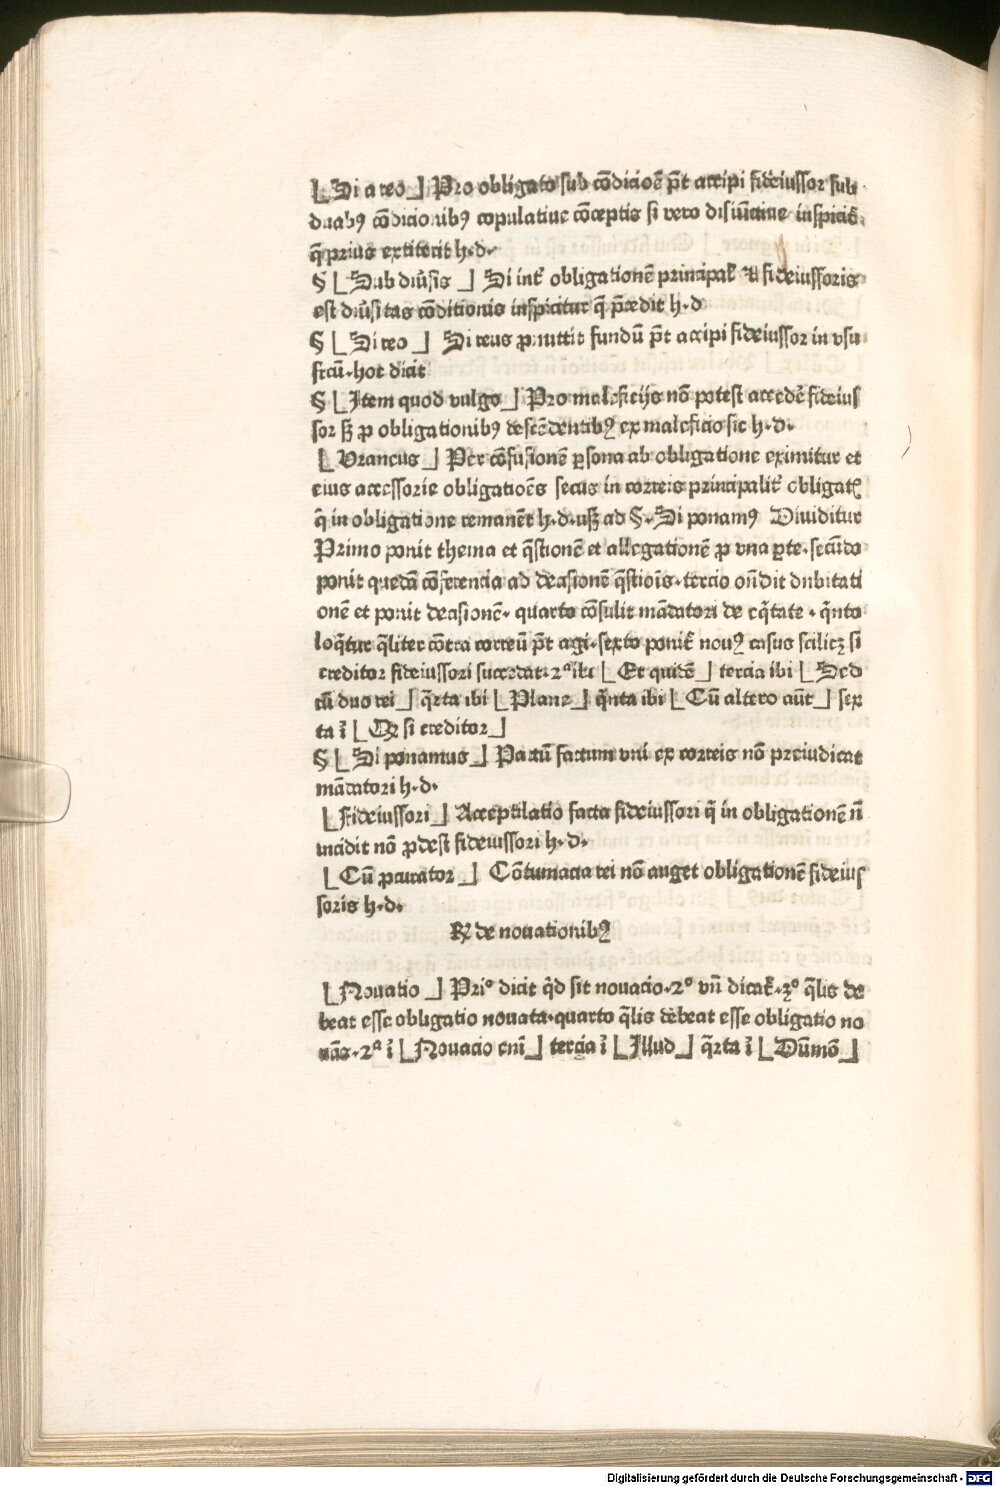 ⌊Si a reo⌋ Pro obligato sub cōdicioē p̄t accipi fideiussor sub
duabꝰ cōdicionibꝰ copulatiue cōceptis si vero disiūctiue inspicit̄
q̄ prius extiterit h·d·
§ ⌊Sub diūsis ⌋ Si int̄ obligationē principal̄ fideiussoris
est diūsitas cōditionis inspicitur q̄ p̄cedit h·d
§ ⌊Si reo ⌋ Si reus ꝓmittit fundū p̄t accipi fideiussor in vsu
frcū·hoc dicit
§ ⌊Item quod vulgo⌋ Pro maleficijs nō potest accedē fideius
sor sꝫ ꝓ obligationibꝰ descēdentibꝰ ex maleficio sic h·d·
⌊Vraneus⌋ Per cōfusionē ꝑsona ab obligatione eximitur et
eius accessorie obligatiōes secus in correis principalit̄ obligatꝭ
q̄ in obligatione remanēt h·d·usꝫ ad §·Si ponamꝰ Diuiditur
Primo ponit thema et q̄stionē et allegationē ꝓ vna ꝑte·secūdo
ponit quedā cōferencia ad decisionē q̄stiōis·tercio oñdit dubitati
onē et ponit decisionē· quarto cōsulit mādatori de eq̄tate · q̄nto
loq̄tur q̄liter cōtra correū p̄t agi·sexto ponit̄ nouꝰ casus scilicꝫ si
creditor fideiussori succedat·2ª ibi ⌊Et quidē⌋ tercia ibi ⌊Sed
cū duo rei⌋ q̄rta ibi ⌊Plane⌋ q̄nta ibi ⌊Cū altero aūt⌋ sex
ta ī ⌊Qꝫ si creditor⌋
§ ⌊Si ponamus⌋ Pactū factum vni ex correis nō preiudicat
mādatori h·d·
⌊Fideiussori⌋ Acceptilatio facta fideiussori q̄ in obligationē n̄
incidit nō ꝓdest fideiussori h·d·
⌊Cū ꝓcurator ⌋ Cōtumacia rei nō auget obligationē fideius
soris h·d·
Rꝫ de nouationibꝰ
⌊Nouatio ⌋ Pri° dicit q̇d sit nouacio·2° vn̄ dicat̄·3° q̄lis de
beat esse obligatio nouata·quarto q̄lis debeat esse obligatio no
uās·2ª ī ⌊Nouacio enī⌋ tercia ī ⌊Illud⌋ q̄rta ī ⌊Dūmō⌋
Digitalisierung gefördert durch die Deutsche Forschungsgemeinschaft - DFG